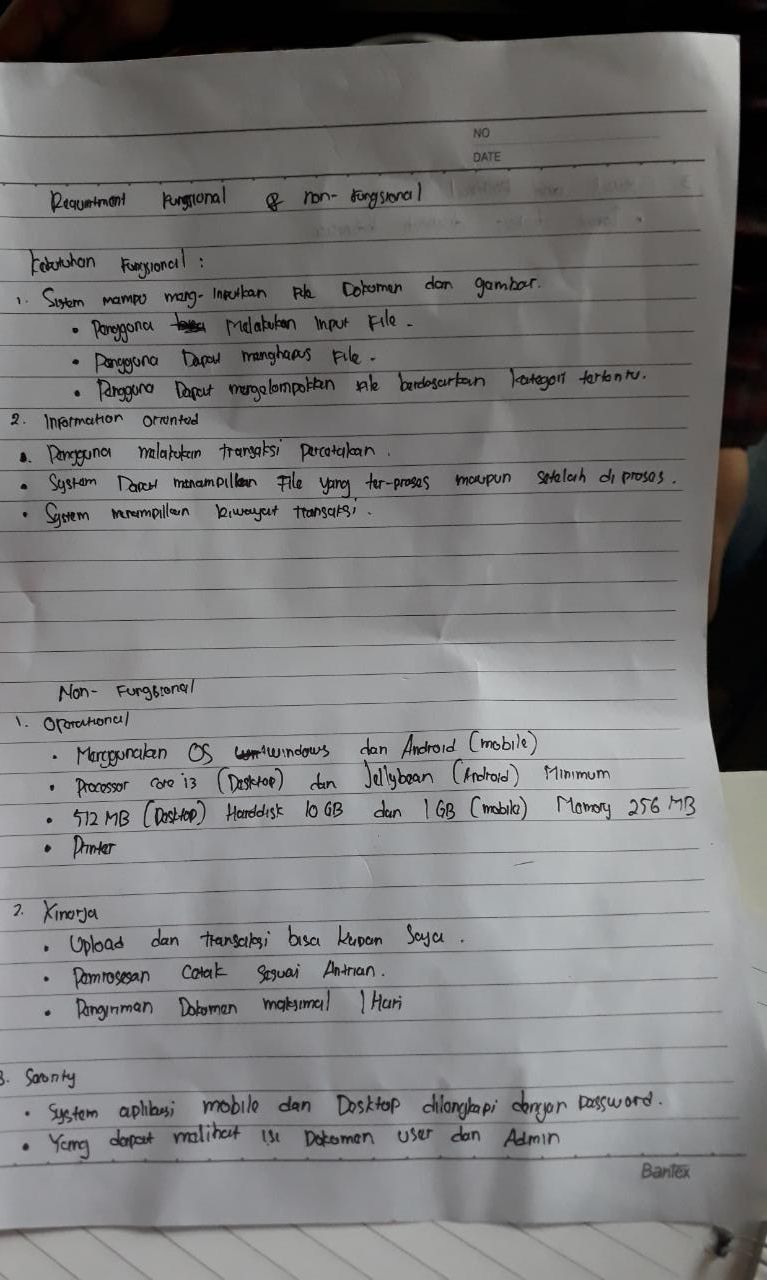 NO
DATE
Requirtment Fungsional & non-Fungsional
Kebutuhan Fungsional :
1. Sistem mampu meng-Inputkan File Dokumen dan gambar.
• Pengguna Melakukan Input File.
• Pengguna Dapat menghapus File.
• Pengguna Dapat mengelompokkan File berdasarkan kategori tertentu.
2. Information Oriented
• Pengguna melakukan transaksi Percetakan.
• System Dapat menampilkan File yang ter-proses maupun setelah di proses.
• System menampilkan Riwayat transaksi.
Non-Fungsional
1. Operational
• Menggunakan OS windows dan Android (mobile)
• Processor core i3 (Desktop) dan Jellybean (Android) Minimum
• 512 MB (Desktop) Harddisk 10 GB dan 1 GB (mobile) Memory 256 MB
• Printer
2. Kinerja
• Upload dan transaksi bisa kapan Saja.
• Pemrosesan Cetak Sesuai Antrian.
• Pengiriman Dokumen maksimal 1 Hari
3. Security
• System aplikasi mobile dan Desktop dilengkapi dengan Password.
• Yang dapat melihat isi Dokumen user dan Admin
Bantex